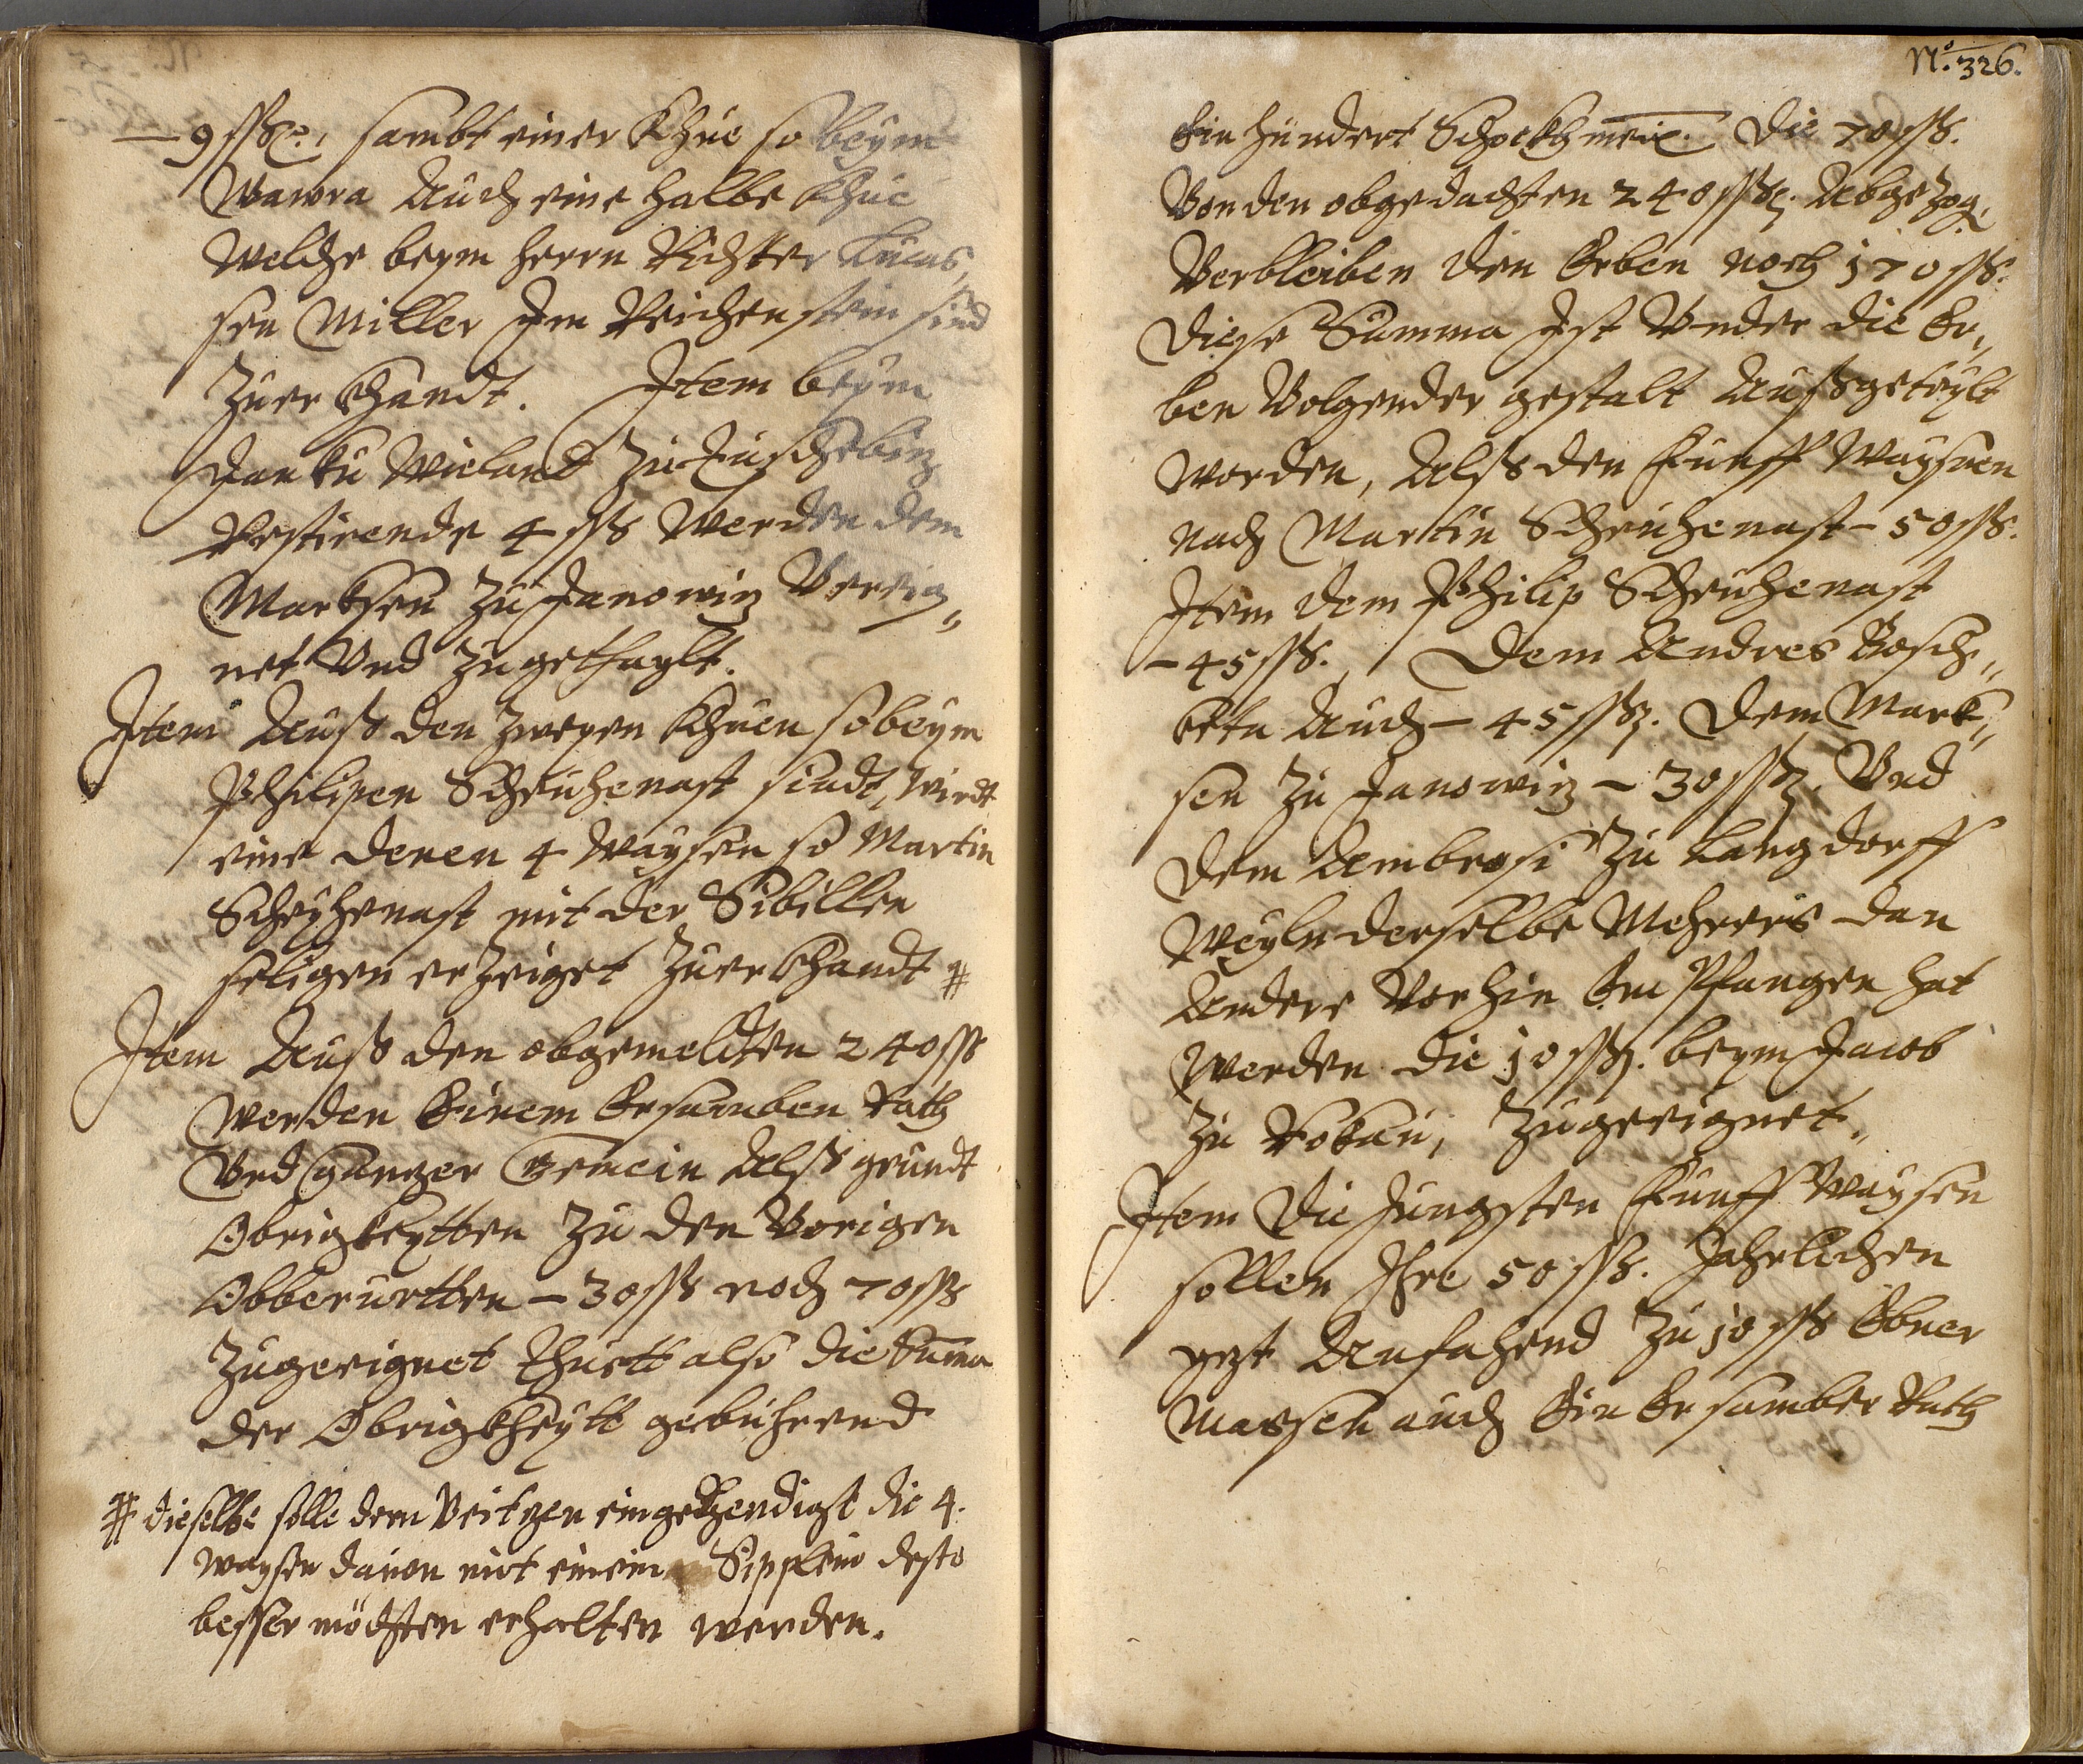 — 9 ßß., sambt einer Khue so beym
Wawra Auch eine halbe Khue
Welche beym herrn Richter Lucas,
sen Miller Im Reichenstein sind
Zuer Khandt. Item beym
Janku Wieland zu
Restirende 4 ßß Werden dem
Marksen zu Janowiz Vereig„
net Vnd zugethaylt.
Item Auß den zweyen Khuen so beym
Philipen Scheuhenast sindt, wirdt
eine denen 4 Waysen so Martin
Scheyhenast mit der Sibillen
seligen erzeiget Zuer Khandt #
Item Auß den obgemeldten 240 ßß
Werden Einem Ersamben Rath
Vnd gantzer Gemein Alß grundt
Obrigkeytten Zu den Vorigen
Obberurtten — 30 ßß noch 70 ßß
Zugeeignet thuett also die Suma
der Obrigkheytt gebuhrend
# dieselbe solle dem Veitzen eingehendigst die 4.
waysen dauon mit einem Sipplein desto
besser möchten erhalten werden.
No. 326.
Ein hundert Schockh meix. Die 70 ßß.
Von den obgedachten 240 ßß. Abgezog.
Verbleiben den Erben noch 170 ßß.
Diese Summa Ist Vnder die Er„
ben Volgender gestalt Außgeteylt
Worden, Alß den Funff Waysen
nach Martin Scheuhenast — 50 ßß.
Item dem Philip Scheuhenast
— 45 ßß. Dem Andres Rosch„
Auch — 45 ßß. Dem Mark„
sen Zu Janowiz — 30 ßß. Vnd
dem Ambrosi Zu Langdorff
Weyln derselbe Mehrers dan
Andere Vorhin Empfangen hat
Werden die 10 ßß. beym Jacob
Zu Zugeeignet.
Item Die Jungsten Funff Waysen
sollen Ihre 50 ßß. Jahrlichen
yezt Anfahend Zu 10 ßß Ebner
Massen auch Ein Ersamber Rath